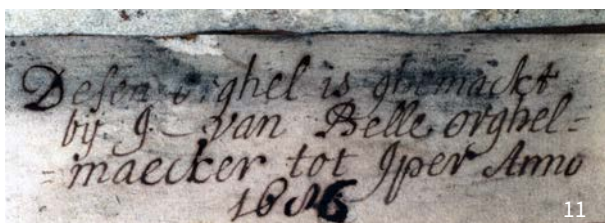 Desen orghel is ghemackt
bij J. van Belle orghel=
=maecker tot Jper Anno
11